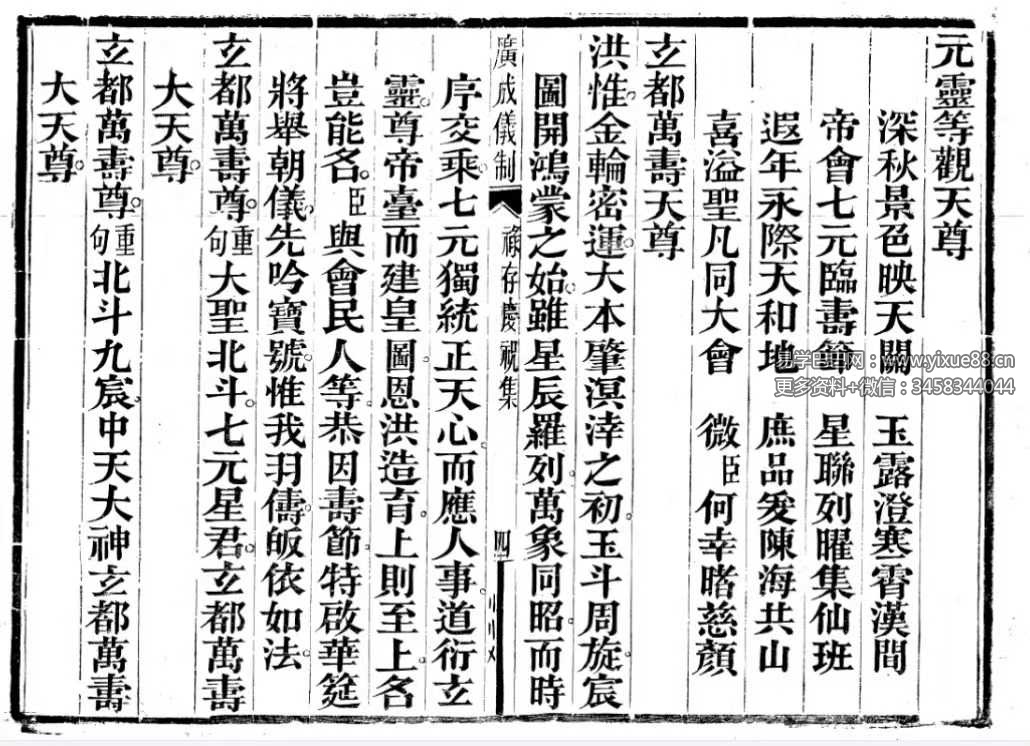 元靈等觀天尊
深秋景色映天關　玉露澄寒霄漢間
帝會七元臨壽節　星聯列曜集仙班
遐年永際天和地　庶品爰陳海共山
喜溢聖凡同大會　微臣何幸睹慈顏
玄都萬壽天尊
洪惟。金輪密運。大本肇溟涬之初。玉斗周旋。宸
圖開鴻蒙之始。雖星辰羅列。萬象同昭。而時
廣成儀制　祿存慶祝集　四
序交乘。七元獨統。正天心。而應人事。道衍玄
靈。尊帝臺而建皇圖。恩洪造育。上則至上。名
豈能名。臣與會民人等。恭因壽節。特啟華筵
將舉朝儀。先吟寶號。惟我羽儔。皈依如法。
玄都萬壽尊。重句大聖北斗。七元星君。玄都萬壽
大天尊
玄都萬壽尊。重句北斗九宸。中天大神玄都萬壽
大天尊
易学巴巴网：www.yixue88.cn
更多资料+微信：3458344044